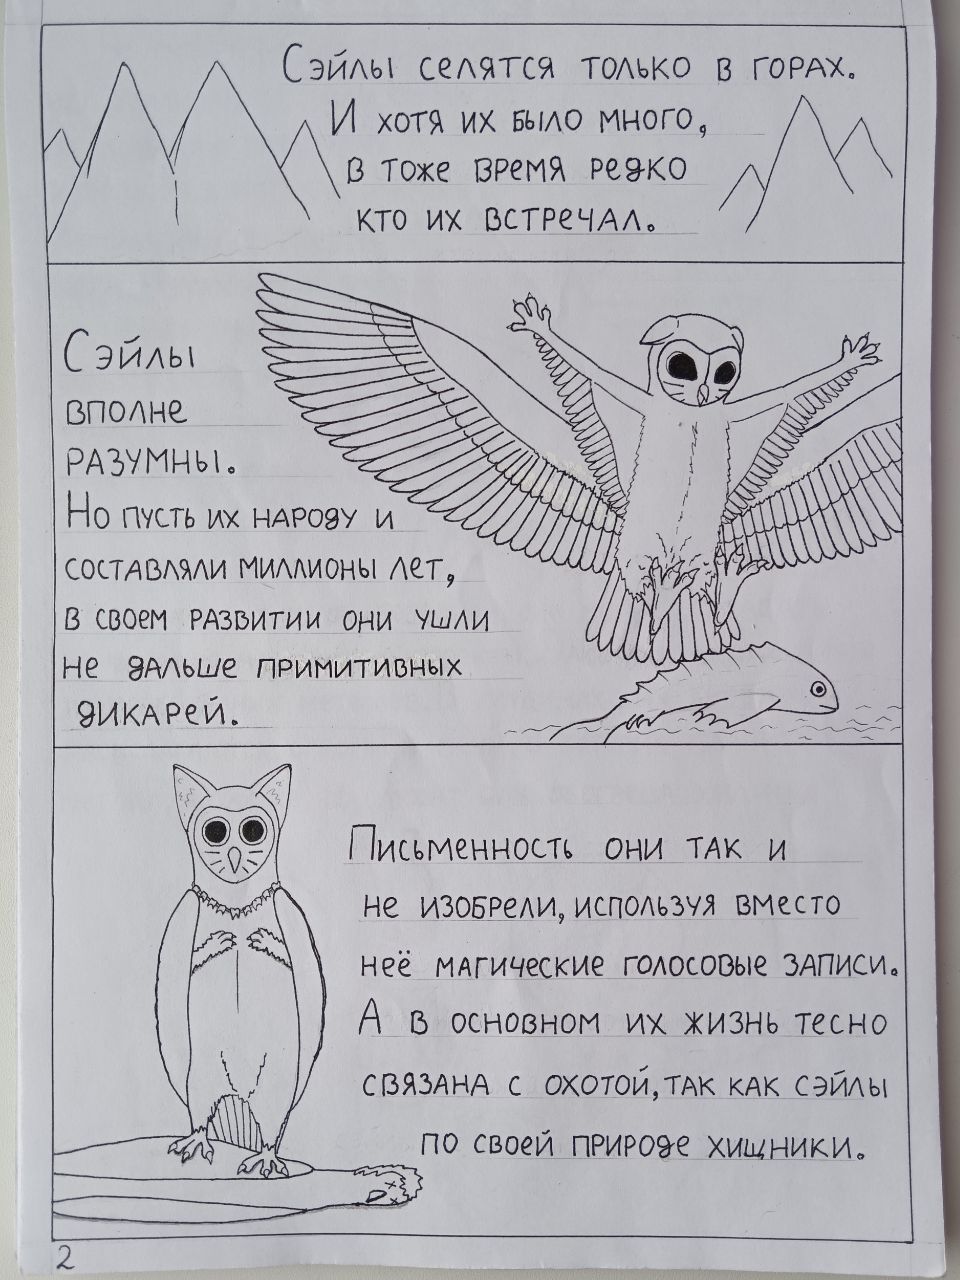 Сэйлы селятся только в горах.
И хотя их было много,
в тоже время редко
кто их встречал.
Сэйлы
вполне
разумны.
Но пусть их народу и
составляли миллионы лет,
в своем развитии они ушли
не дальше примитивных
дикарей.
Письменность они так и
не изобрели, используя вместо
неё магические голосовые записи.
А в основном их жизнь тесно
связана с охотой, так как сэйлы
по своей природе хищники.
2